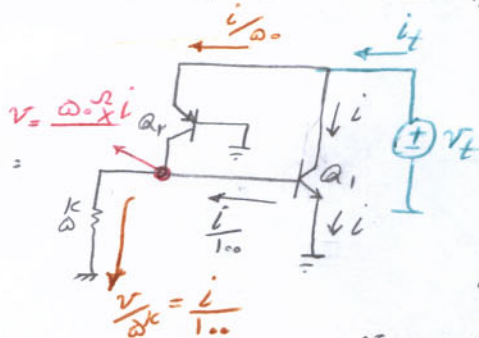 i/۵۰
i_t
v = ۵۰^Ω × i
=
Q۲
i
v_t
Q۱
i/۱۰۰
i
۵^k
v/۵^k = i/۱۰۰